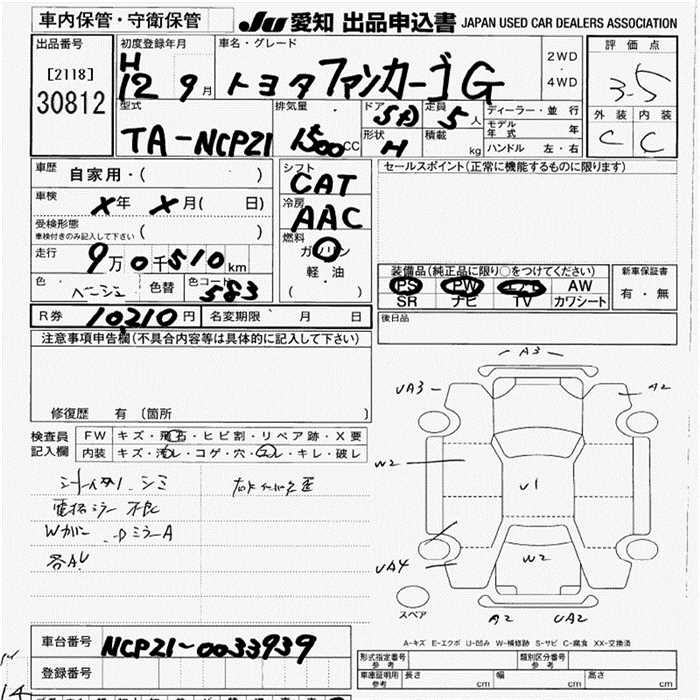 車内保管・守衛保管
JU 愛知 出品申込書 JAPAN USED CAR DEALERS ASSOCIATION
出品番号
[2118]
30812
初度登録年月
H 12 9月
車名・グレード
トヨタ ファンカーゴ G
2WD
・
4WD
評価点
3.5
外装 内装
C C
型式
TA-NCPZ1
排気量
1500CC
ドア
5D
形状
H
定員
5人
積載
kg
ディーラー・並行
モデル年式 年
ハンドル 左・右
車歴
自家用・( )
車検
X年 X月( 日)
受検形態
車検付きのみ記入して下さい ( )
走行
9万0千510km
色
ベージュ
色替
色コード
583
シフト
CAT
冷房
AAC
燃料
ガソリン
軽油
( )
セールスポイント(正常に機能するものに限ります)
装備品(純正品に限り○をつけてください)
PS PW エアB AW
SR ナビ TV カワシート
新車保証書
有・無
後日品
R券 10,210円 名変期限 月 日
注意事項申告欄(不具合内容等は具体的に記入して下さい)
修復歴 有 〔箇所 〕
検査員
記入欄
FW キズ・飛石・ヒビ割・リペア跡・X要
内装 キズ・汚れ・コゲ・穴・スレ・キレ・破レ
電格ミラー 不良
各AU
A3
UA3
A2
W2
U1
W2
UA4
A2
UA2
スペア
A-キズ E-エクボ U-凹み W-補修跡 S-サビ C-腐食 XX-交換済
車台番号 NCPZ1-0033939
登録番号
形式指定番号
参考
類別区分番号
参考
車庫証明用
参考
長さ cm 幅 cm 高さ cm
14